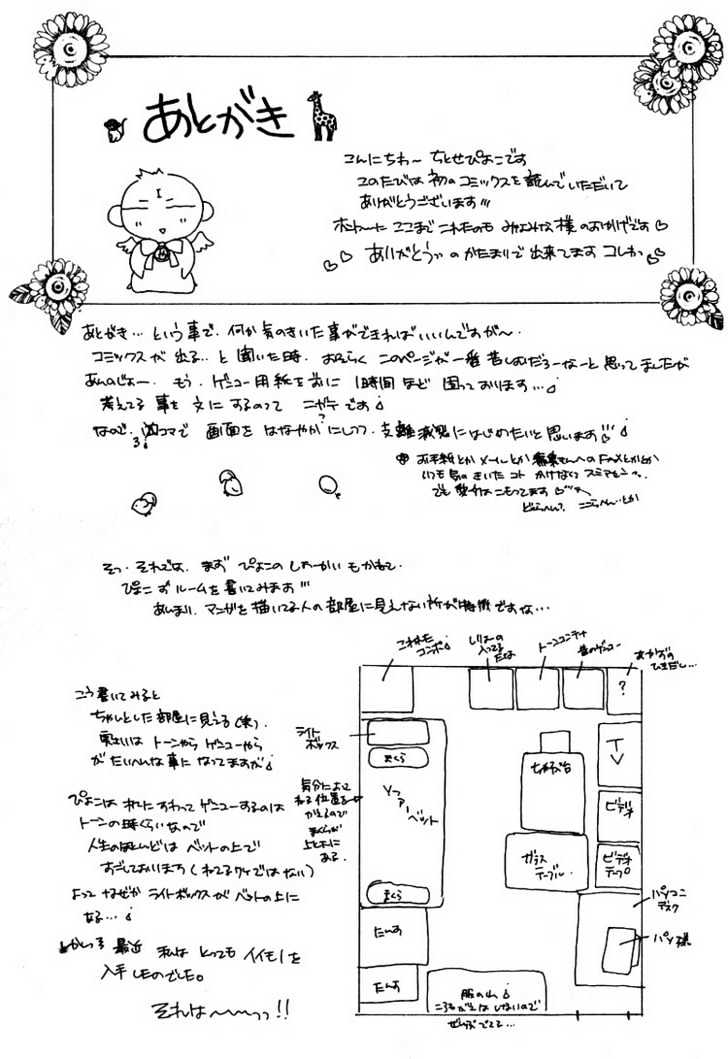 あとがき
こんにちわ〜 ちとせぴよこです
このたびは 初の コミックスを 読んで いただいて
ありがとうございます!!!
ホントーに ここまで これたのも みなみな様 のおかげです♡
ありがとうッ のかたまりで 出来てます コレわ
あとがき… という事で、何か 気のきいた事が できれば いいんですが〜。
コミックスが 出る…と 聞いた時、おそらく このページが 一番 苦しむだろーなーと 思って ましたが
あんのじょー、もう、ゲンコー用紙を 前に 1時間 ほど 困っております…
考えてる 事を 文に するのって ニガテです
なので、コマで 画面を はなやか?にしつつ、支離滅裂に はじめたいと 思います!!!
お手紙とか メールとか 編集さんへの FAXとかとか
いつも 気の きいた コト かけない スミマセンっ
でも 愛だけは こもってます♡
どこらへん? ここらへん…とか
そっ、それでは、まず ぴよこの しょーかい もかねて、
ぴよこ ず ルームを 書いてみます!!!
あんまり、マンガを 描いてる人の 部屋に 見えない 所が 特徴ですな…
こう 書いて みると
ちゃんとした 部屋に 見える(笑)。
実さいは トーンやら ゲンコーやら
が たいへんな 事に なってますが
ぴよこは 机に すわって ゲンコーするのは
トーンの 時くらい なので
人生の ほとんどは ベットの上で
すごしております(ねてる ワケでは ない)
よって なぜか ライトボックスが ベットの上に
ある…
しかし 最近 私は とっても イイモノを
入手したのでした。
それは〜〜〜っっ!!
こわれた
コンポ
しりょーの
入ってる
たな
トーンコンテナ
昔のゲンコー
あかずの
ひきだし…
?
ライト
ボックス
まくら
ソファーベット
気分によって
ねる位置を
かえるので
まくらが
上と下に
ある。
まくら
ちゃぶ台
ガラス
テーブル
TV
ビデオ
ビデオ
テープ
パソコン
デスク
パソ様
たんす
たんす
服の山
ころもがえは しないので
ぜんぶでてる…